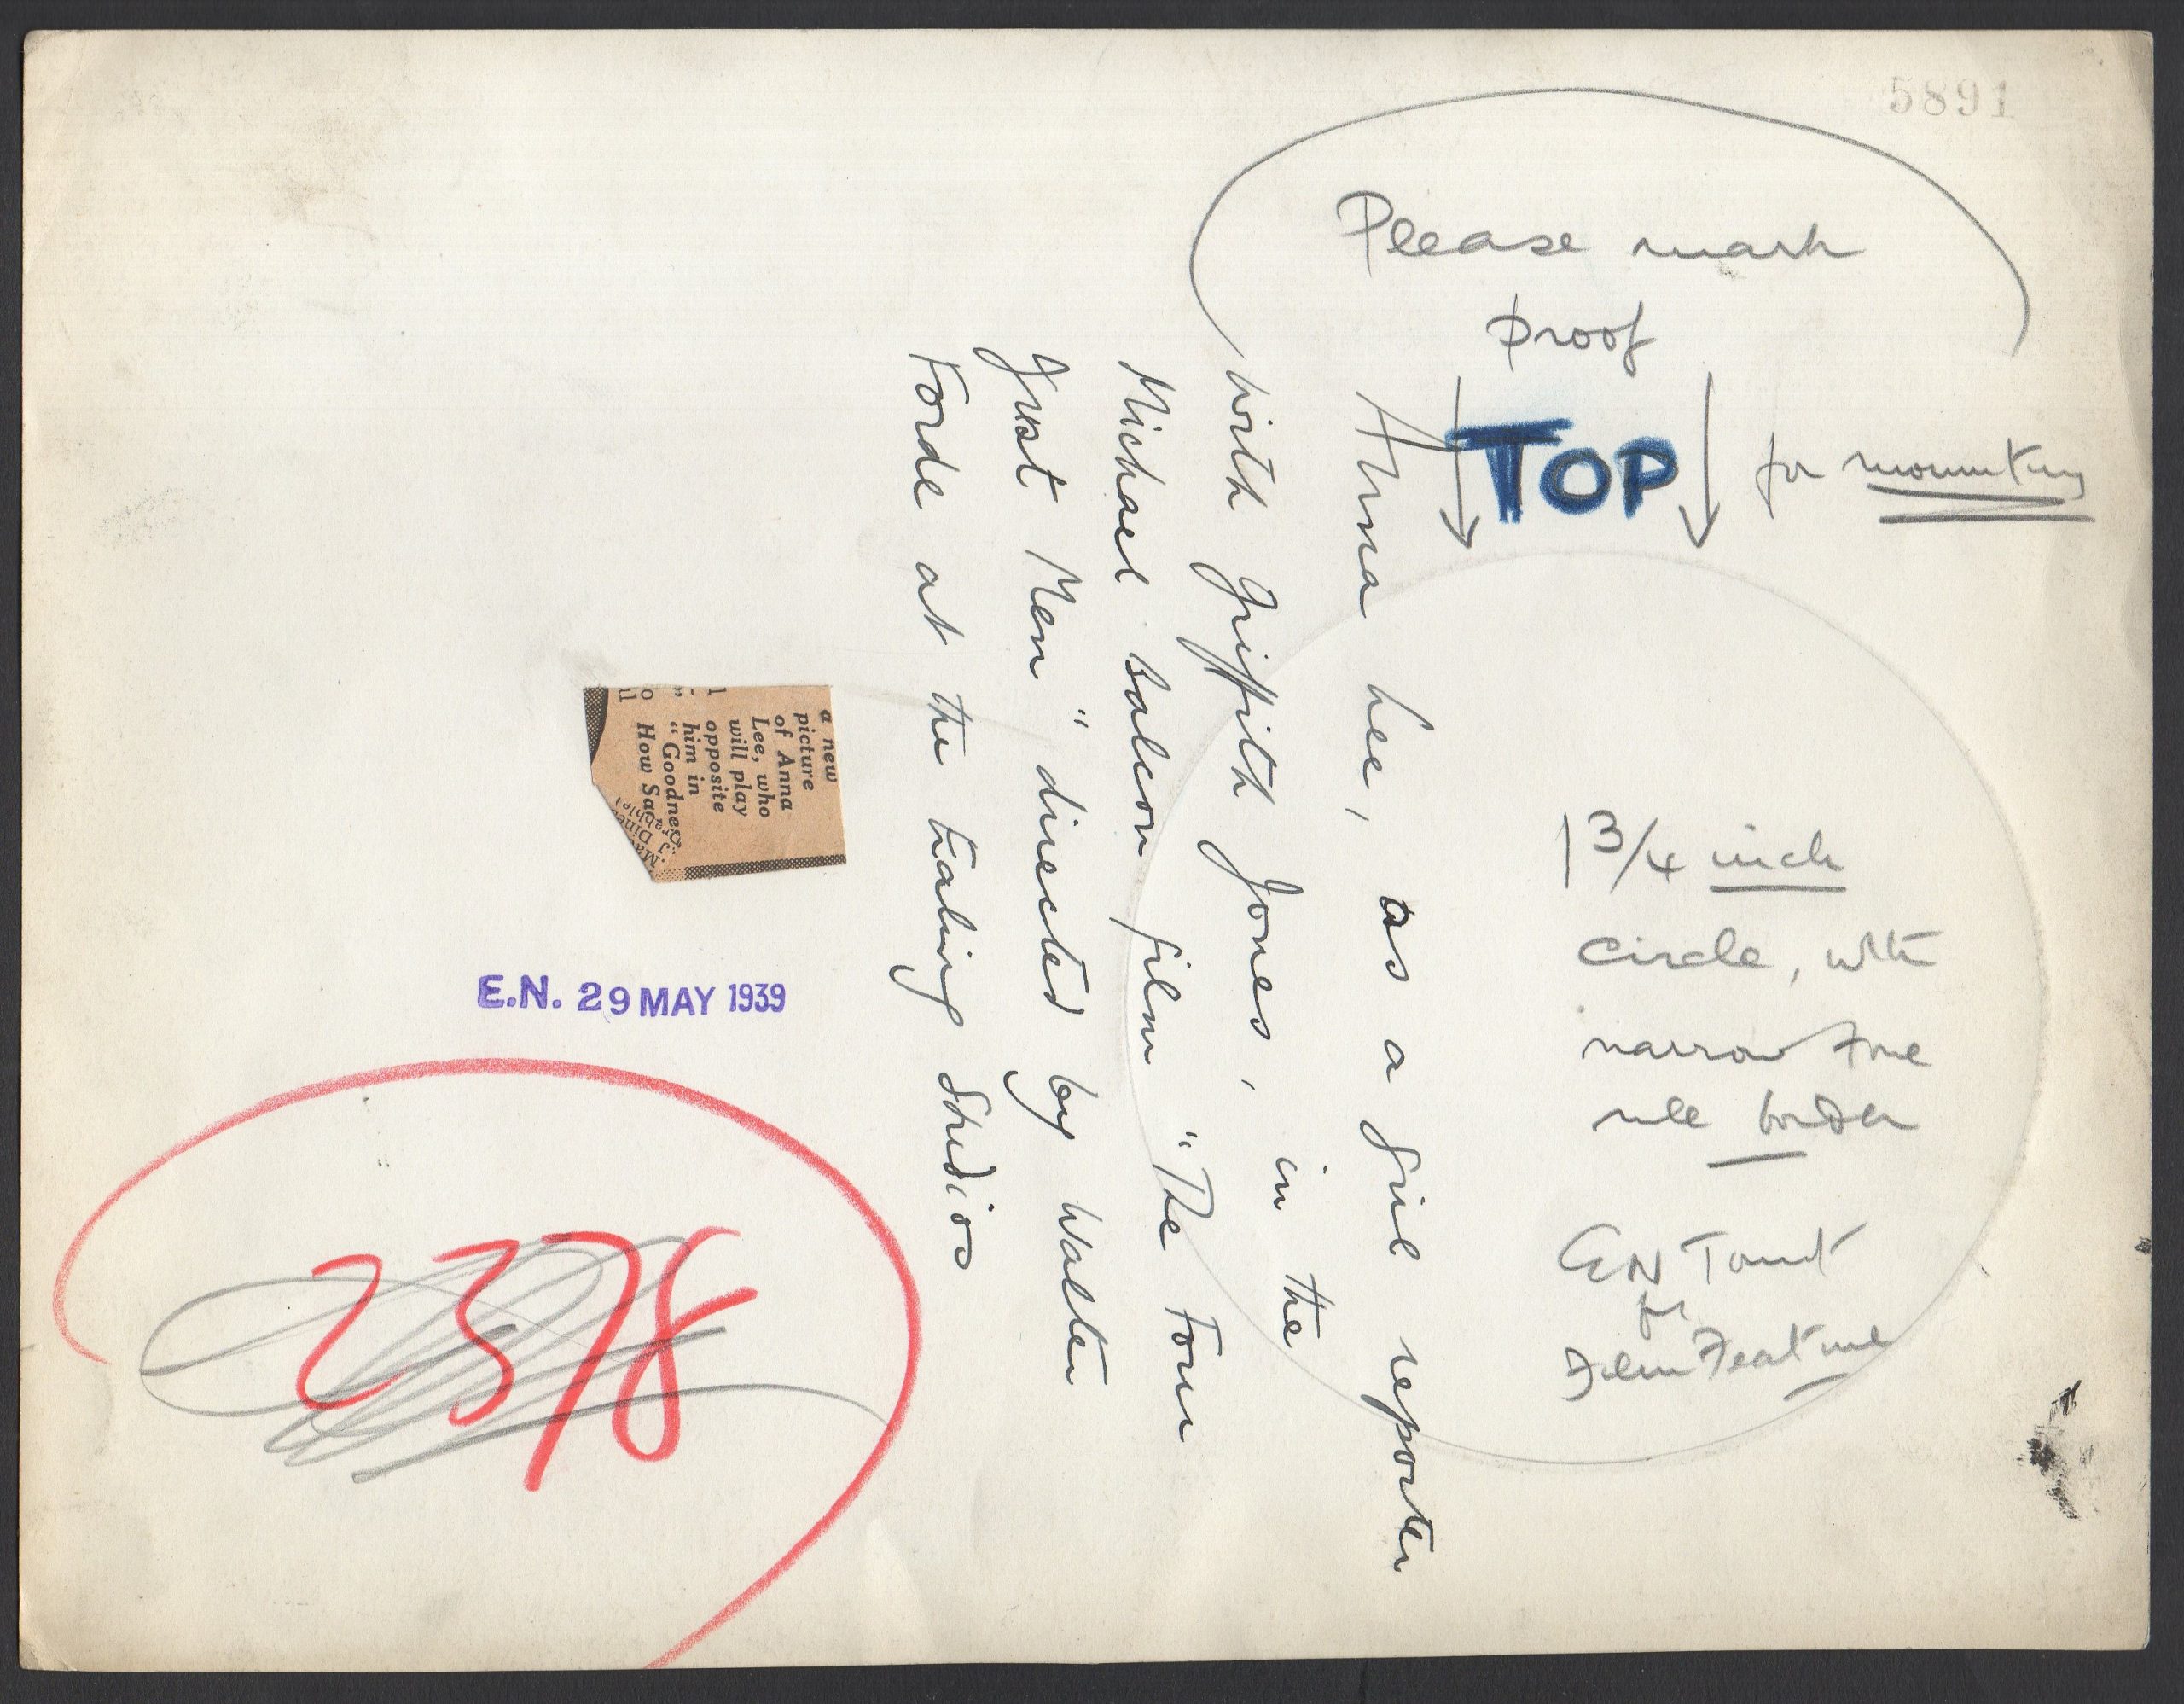 5891
Please mark
proof
TOP for mounting
Anna Lee, as a girl reporter
with Griffith Jones, in the
Michael Balcon film "The Four
Just Men" directed by Walter
Forde at the Ealing Studios
1 3/4 inch
circle, with
narrow tone
rule border
EN
Film Feature
a new
picture
of Anna
Lee, who
will play
opposite
him in
"Goodness
How Sad
E.N. 29 MAY 1939
2378